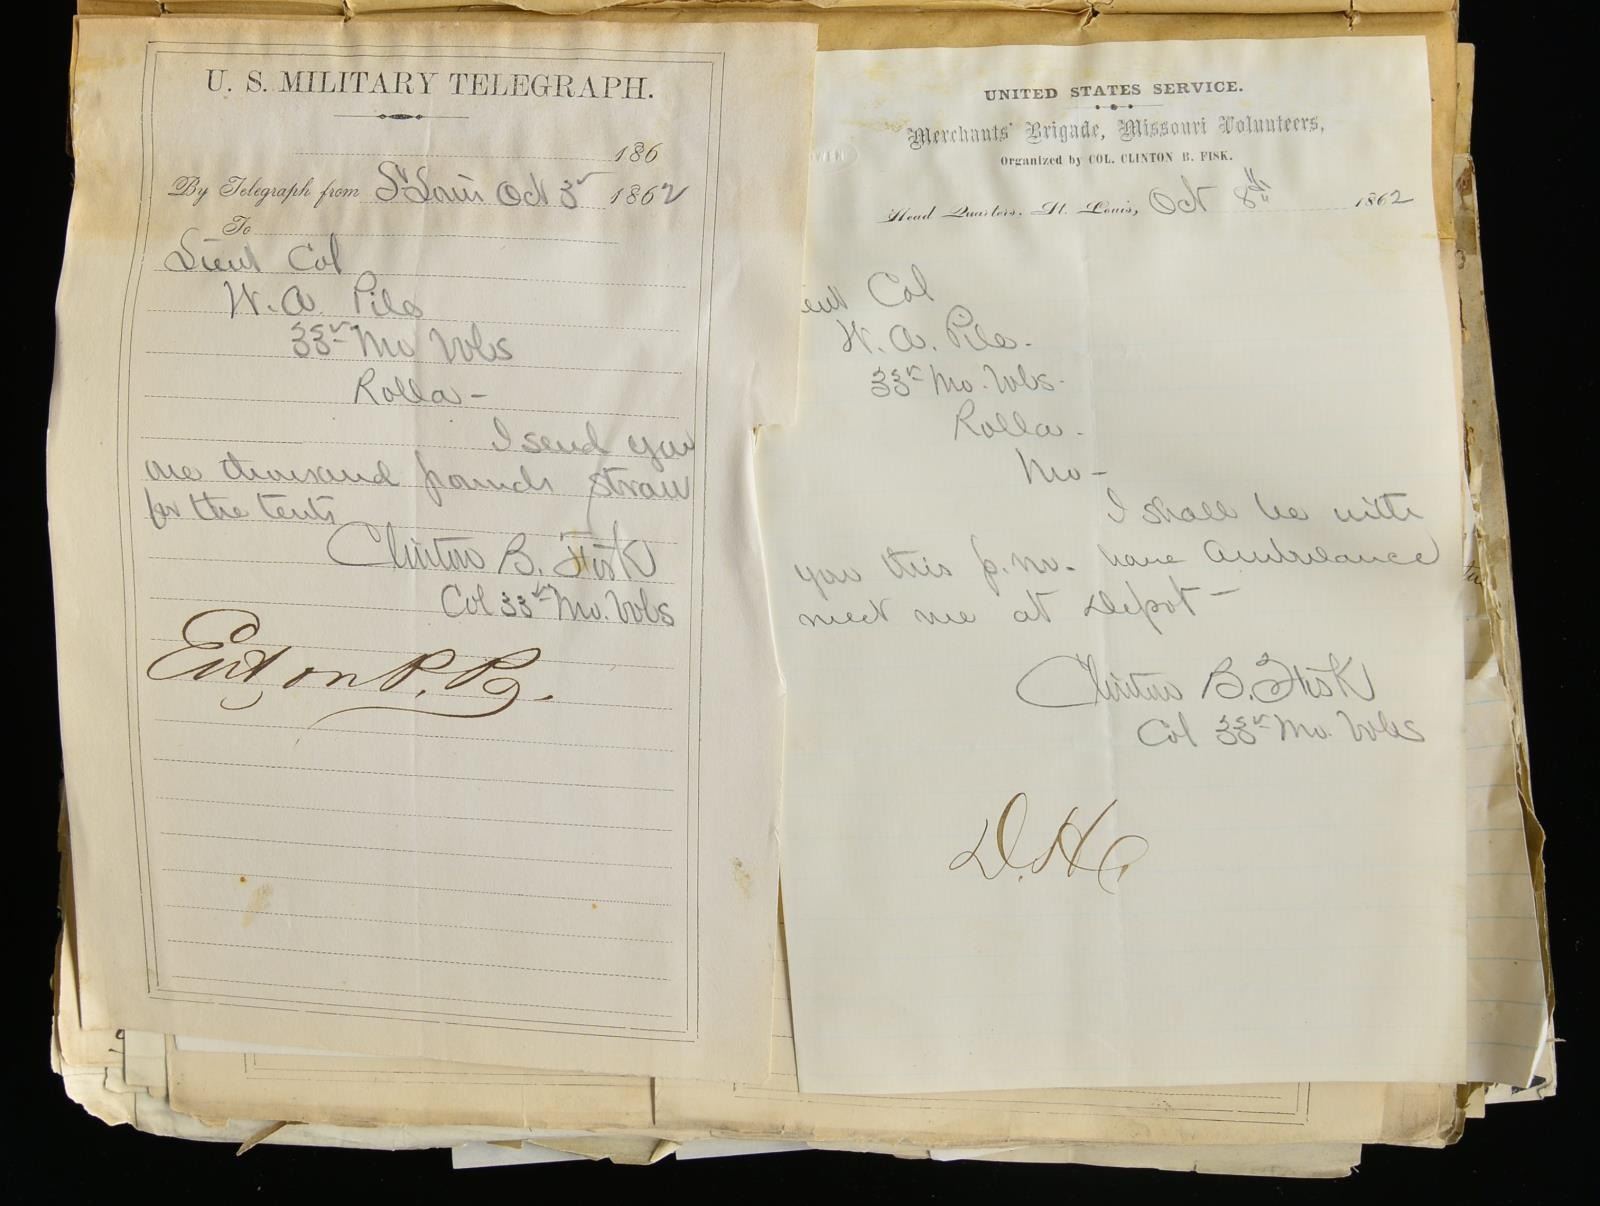 U. S. MILITARY TELEGRAPH.
186
By Telegraph from St Louis Oct 3d 1862
To
Lieut Col
W. A. Pile
33d Mo Vols
Rolla -
I send you
one thousand pounds straw
for the tents
Clinton B. Fisk
Col 33d Mo. Vols
P. R.
UNITED STATES SERVICE.
Merchants' Brigade, Missouri Volunteers,
Organized by COL. CLINTON B. FISK.
Head Quarters, St. Louis, Oct 8th 1862
ieut Col
W. A. Pile.
33d Mo. Vols.
Rolla.
Mo -
I shall be with
you this p.m. have ambulance
meet me at Depot -
Clinton B. Fisk
Col 33d Mo. Vols
D. H.